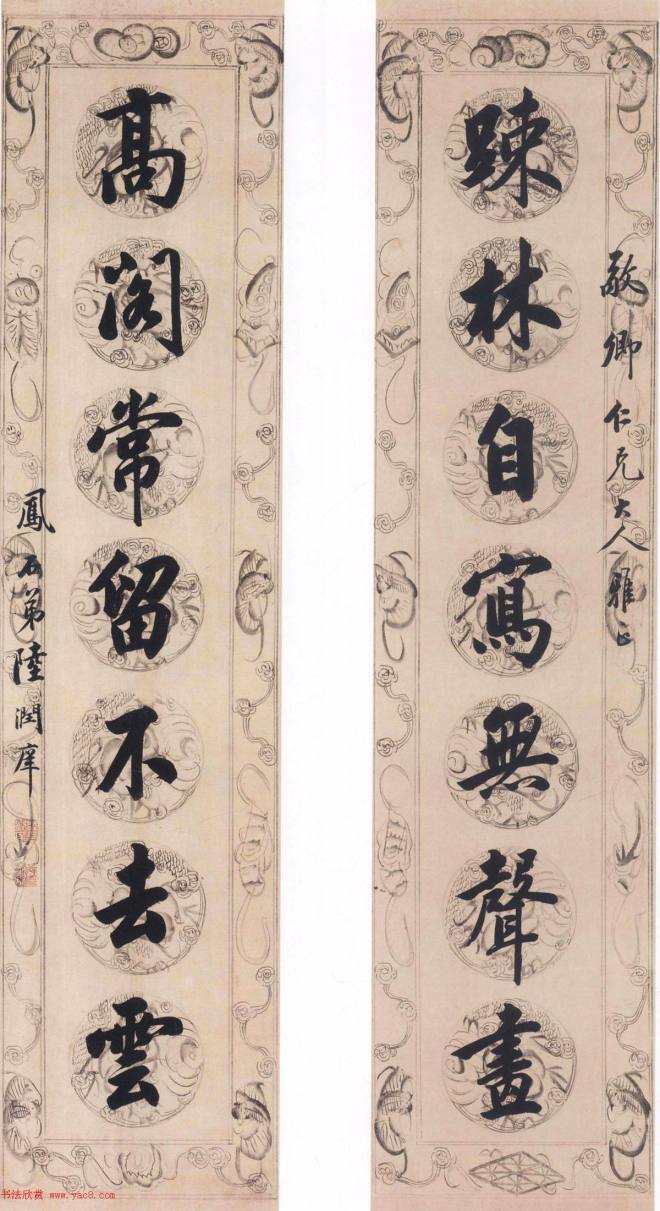 敬卿仁兄大人雅正
踈林自寫無聲畫
髙閣常留不去雲
鳳石弟陸潤庠
书法欣赏 www.yac8.com